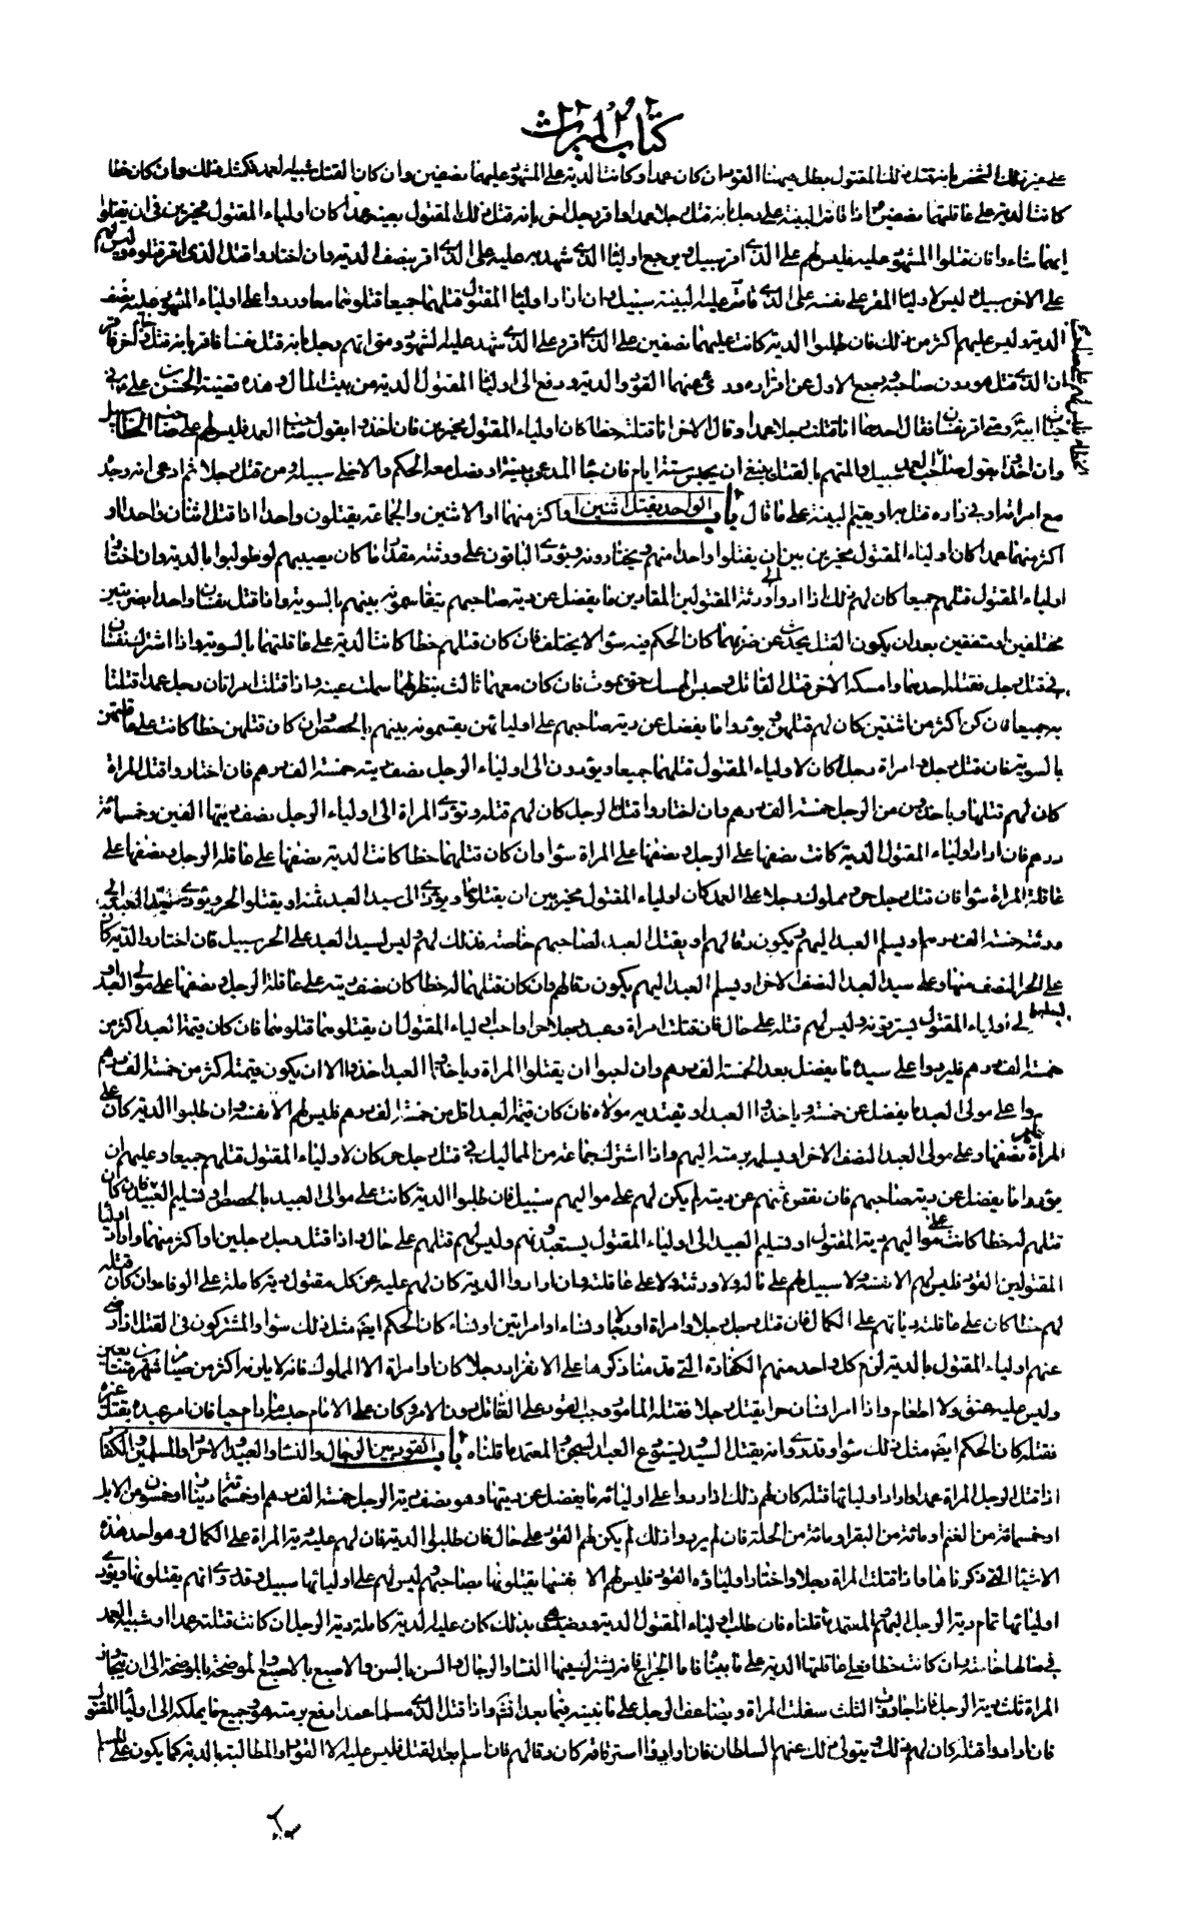 كتاب الميراث
على غير ذلك الشخص بانه قتل ذلك المقتول بطل هيهنا القود ان كان عمدا وكانت الدية على المشهود عليهما نصفين وان كان القتل شبيه العمد فكمثل ذلك وان كان خطا
كانت الدية على عاقلتهما نصفين واذا قامت البينة على رجل بانه قتل رجلا عمدا واقر رجل اخر بانه قتل ذلك المقتول بعينه عمدا كان اولياء المقتول مخيرين في ان يقتلوا
ايهما شاءوا فان قتلوا المشهود عليه فليس لهم على الذي اقر سبيل ويرجع اوليا الذي شهد به عليه على الذي اقر بنصف الدية وان اختاروا قتل الذي اقر قتلوه وليس لهم
على الاخر سبيل وليس لاوليا المقر على نفسه على الذي قامت عليه البينة سبيل وان ارادا اوليا المقتول قتلهما جميعا قتلوهما معا وردوا على اولياء المشهود عليه نصف
الدية وليس عليهم اكثر من ذلك فان طلبوا الدية كانت عليهما نصفين على الذي اقر وعلى الذي شهد عليه الشهود ومتى اتهم رجل بانه قتل نفسا فاقر بانه قتل وجاء اخر فاقر
ان الذي قتل هو دون صاحبه ورجع الاول عن اقراره درئ عنهما القود والدية ودفع الى اوليا المقتول الدية من بيت المال وهذه قضية الحسن بن علي في
حياة ابيه ومتى اقر نفسان فقال احدهما انا قتلت رجلا عمدا وقال الاخر انا قتلته خطا كان اولياء المقتول مخيرين فان اخذوا بقول صاحب العمد فليس لهم على صاحب الخطا سبيل
وان اخذوا بقول صاحب الخطاء فليس لهم على صاحب العمد سبيل والمتهم بالقتل ينبغي ان يحبس ستة ايام فان جا المدعي ببينة او فصل معه الحكم والا خلي سبيله ومن قتل رجلا ثم ادعى انه وجد
مع امراته او في داره قتل به او يقيم البينة على ما قال باب الواحد يقتل اثنين او اكثر منهما او الاثنين والجماعة يقتلون واحدا اذا قتل اثنان واحدا او
اكثر منهما عمدا كان اولياء المقتول مخيرين بين ان يقتلوا واحدا منهم يختارونه ويؤدي الباقون على ورثته مقدار ما كان يصيبهم لو طولبوا بالدية وان اختار
اولياء المقتول قتلهم جميعا كان لهم ذلك اذا ادوا الى ورثة المقتولين المقادين ما يفضل عن دية صاحبهم يتقاسمونه بينهم بالسوية واذا قتل نفسان واحدا بضربتين
مختلفين او متفقين بعد ان يكون القتل يحدث عن ضربهما كان الحكم فيه سوا لا يختلف فان كان قتلهم خطا كانت الدية على عاقلتهما بالسوية واذا اشترك نفسان
في قتل رجل فقتله احدهما وامسكه الاخر قتل القاتل وحبس الممسك حتى يموت فان كان معهما ثالث ينظر لهما سملت عينه واذا قتلت امراتان رجلا عمدا قتلتا
به جميعا فان كن اكثر من اثنتين كان لهم قتلهن ويؤدوا ما يفضل عن دية صاحبهم على اوليائهن يقتسمونه بينهم بالحصص وان كان قتلهن خطا كانت على عاقلتهن
بالسوية فان قتل رجل وامراة رجلا كان لاولياء المقتول قتلهما جميعا ويؤدون الى اولياء الرجل نصف ديته خمسة الف درهم فان اختاروا قتل المراة
كان لهم قتلها وياخذون من الرجل خمسة الف درهم وان اختاروا قتل الرجل كان لهم قتله وتؤدي المراة الى اولياء الرجل نصف ديتها الفين وخمسمائة
درهم فان اراد اولياء المقتول الدية كانت نصفها على الرجل ونصفها على المراة سواء وان كان قتلهما خطا كانت الدية نصفها على عاقلة الرجل ونصفها على
عاقلة المراة سوا فان قتل رجل حر ومملوك رجلا على العمد كان اولياء المقتول مخيرين بين ان يقتلوهما ويؤدي الى سيد العبد ثمنه او يقتلوا الحر ويؤدي سيد العبد الى
ورثته خمسة الف درهم او يسلم العبد اليهم يكون رقا لهم او يقتل العبد بصاحبهم خاصة فذلك لهم وليس لسيد العبد على الحر سبيل فان اختاروا الدية كان
على الحر النصف منها وعلى سيد العبد النصف الاخر او يسلم العبد اليهم يكون رقا لهم وان كان قتلهما له خطا كان نصف ديته على عاقلة الرجل ونصفها على مولى العبد او
يسلمه الى اولياء المقتول يسترقونه وليس لهم قتله على حال فان قتلت امراة وعبد رجلا حرا واحب اولياء المقتول ان يقتلوهما قتلوهما فان كان قيمة العبد اكثر من
خمسة الف درهم فليردوا على سيده ما يفضل بعد الخمسة الف درهم وان احبوا ان يقتلوا المراة وياخذوا العبد اخذوا الا ان يكون قيمته اكثر من خمسة الف درهم
فليردوا على مولى العبد ما يفضل عن خمسة وياخذوا العبد او يفتديه مولاه فان كان قيمة العبد اقل من خمسة الف درهم فليس لهم الا نفسه وان طلبوا الدية كان على
المراة نصفها وعلى مولى العبد النصف الاخر او يسلمه برمته اليهم واذا اشترك جماعة من المماليك في قتل رجل حر كان لاولياء المقتول قتلهم جميعا وعليهم ان
يؤدوا ما يفضل عن دية صاحبهم فان نقص ثمنهم عن ديته لم يكن لهم على مواليهم سبيل فان طلبوا الدية كانت على موالي العبيد بالحصص او تسليم العبيد فان كان
قتلهم له خطا كانت على مواليهم دية المقتول او تسليم العبيد الى اولياء المقتول يستعبدونهم وليس لهم قتلهم على حال واذا قتل رجل رجلين او اكثر منهما واراد اوليا
المقتولين القود فليس لهم الا نفسه ولا سبيل لهم على ماله ولا ورثته ولا على عاقلته وان ارادوا الدية كان لهم عليه عن كل مقتول دية كاملة على الوفاء وان كان قتله
لهم خطا كان على عاقلته دياتهم على الكمال فان قتل رجل رجلا وامراة او رجالا ونساء او امراتين او نساء كان الحكم ايضا مثل ذلك سوا والمشتركون في القتل اذا رضي
عنهم اولياء المقتول بالدية لزم كل واحد منهم الكفارة التي قدمنا ذكرها على الانفراد رجلا كان او امراة الا المملوك فانه لا يلزمه اكثر من صيام شهرين متتابعين
وليس عليه عتق ولا اطعام واذا امر انسان حرا بقتل رجل فقتله المامور وجب القود على القاتل دون الامر وكان على الامام حبسه ما دام حيا فان امر عبده بقتل غيره
فقتله كان الحكم ايضا مثل ذلك سوا وقد روي انه يقتل السيد ويستودع العبد السجن والمعتمد ما قلناه باب القود بين الرجال والنساء والعبيد والاحرار والمسلمين والكفار
اذا قتل الرجل المراة عمدا واراد اولياؤها قتله كان لهم ذلك اذا ردوا على اوليائه ما يفضل عن ديتها وهو نصف دية الرجل خمسة الف درهم او خمسمائة دينار او خمسون من الابل
او خمسمائة من الغنم او مائة من البقر او مائة من الحلة فان لم يردوا ذلك لم يكن لهم القود على حال فان طلبوا الدية فان لهم عليه دية المراة على الكمال وهو احد هذه
الاشيا التي ذكرناها واذا قتلت المراة رجلا واختار اولياؤه القود فليس لهم الا نفسها يقتلونها بصاحبهم وليس لهم على اوليائها سبيل وقد روي انهم يقتلونها ويؤدي
اولياؤها تمام دية الرجل اليهم والمعتمد ما قلناه فان طلب اولياء المقتول الدية ورضيت هي بذلك كان عليه الدية كاملة دية الرجل ان كانت قتلته عمدا او شبيه العمد
في مالها خاصة وان كانت خطا فعلى عاقلتها الدية على ما بيناه فاما الجراح فانه يشترك فيها النساء والرجال والسن بالسن والاصبع بالاصبع والموضحة بالموضحة الى ان يتجاوز
المراة ثلث دية الرجل فاذا جاوزت الثلث سفلت المراة ويضاعف الرجل على ما نبينه فيما بعد انشاء واذا قتل الذمي مسلما عمدا دفع برمته هو وجميع ما يملكه الى اولياء المقتول
فان ارادوا قتله كان لهم ذلك ويتولى ذلك عنهم السلطان فان ارادوا استرقاقه كان رقا لهم فان اسلم بعد القتل فليس عليه الا القود والمطالبة بالدية كما يكون على المسلم